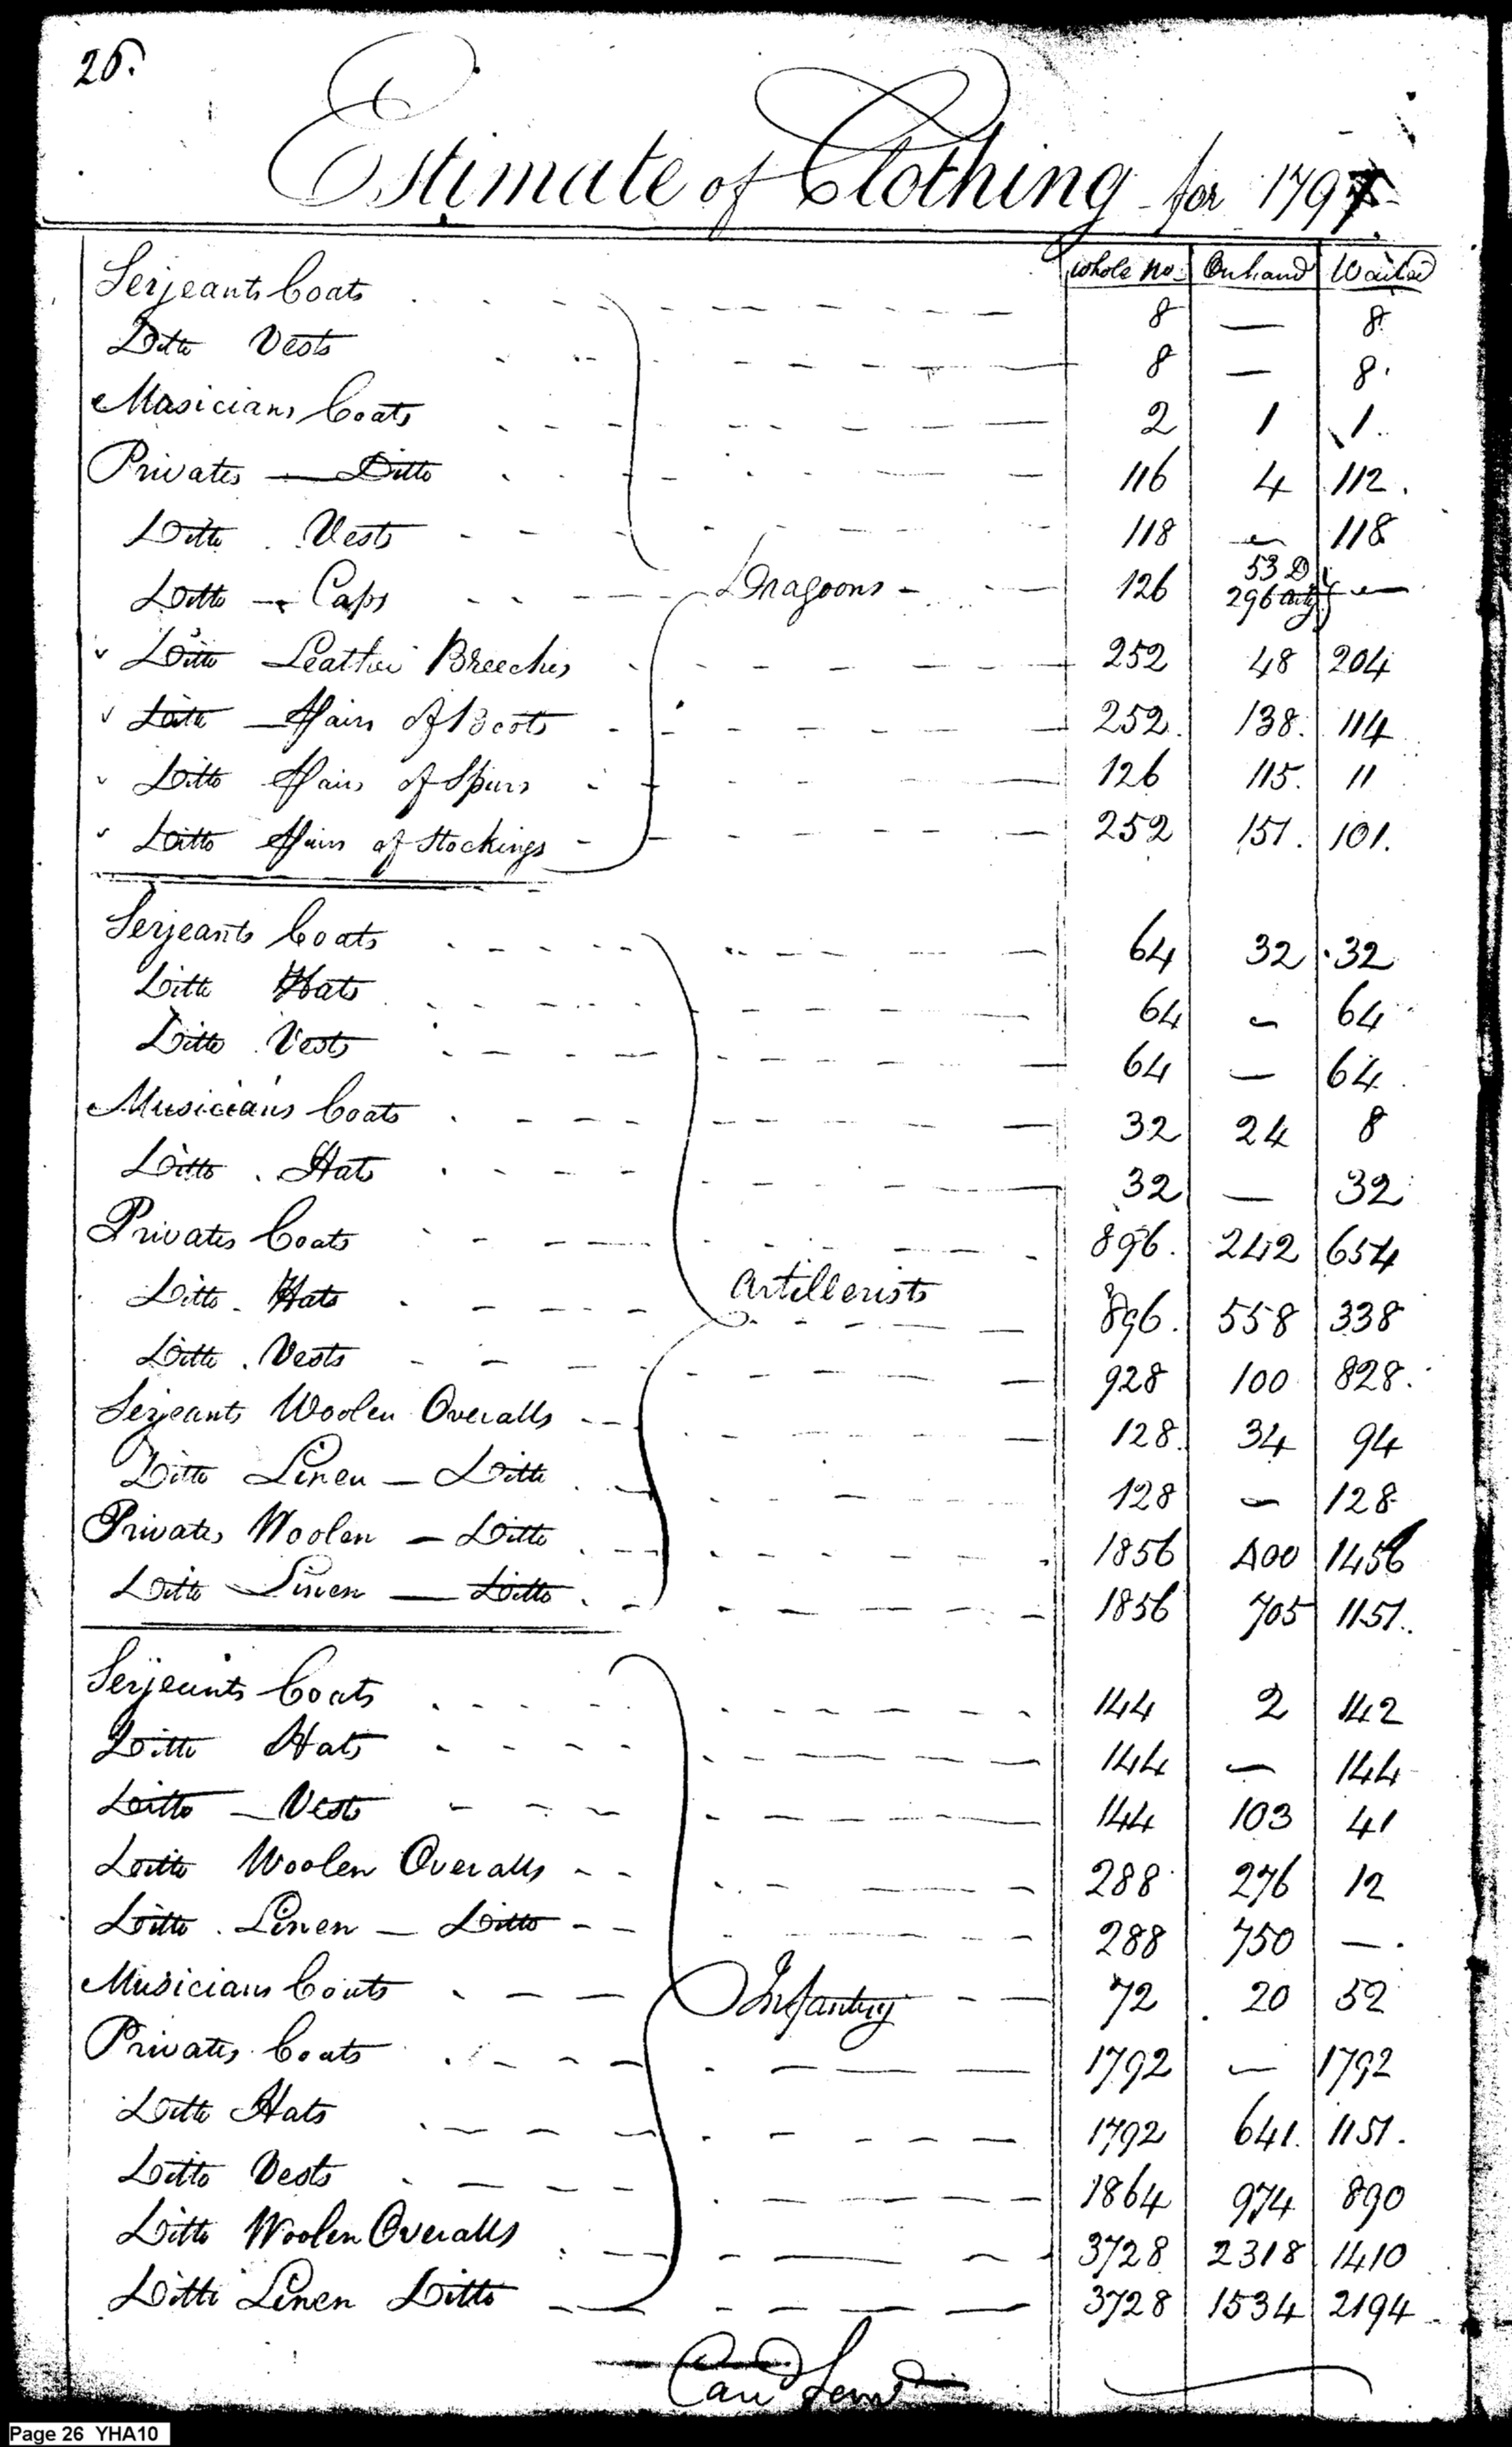 26.
Estimate of Clothing for 1797.
Whole No. On hand Wanted
Serjeants Coats 8 — 8
Ditto Vests 8 — 8.
Musicians Coats 2 1 1.
Privates — Ditto 116 4 112.
Ditto Vests 118 — 118
Ditto — Caps Dragoons 126 53 D 296 arty } —
Ditto Leather Breeches 252 48 204
Ditto — Pairs of Boots 252. 138. 114
Ditto Pairs of Spurs 126 115. 11
Ditto Pairs of Stockings 252 151. 101.
Serjeants Coats 64 32 32
Ditto Hats 64 — 64
Ditto Vests 64 — 64
Musicians Coats 32 24 8
Ditto. Hats 32 — 32
Privates Coats 896. 242 654
Ditto. Hats Artillerists 896. 558 338
Ditto. Vests 928 100 828.
Serjeants Woolen Overalls 128. 34 94
Ditto Linen — Ditto 128 — 128
Privates Woolen — Ditto 1856 400 1456
Ditto Linen — Ditto 1856 705 1151.
Serjeants Coats 144 2 142
Ditto Hats 144 — 144
Ditto — Vests 144 103 41
Ditto Woolen Overalls 288 276 12
Ditto. Linen — Ditto 288 750 —.
Musicians Coats Infantry 72 20 52
Privates Coats 1792 — 1792
Ditto Hats 1792 641. 1151.
Ditto Vests 1864 974 890
Ditto Woolen Overalls 3728 2318 1410
Ditto Linen Ditto 3728 1534 2194
Card
Page 26 YHA10